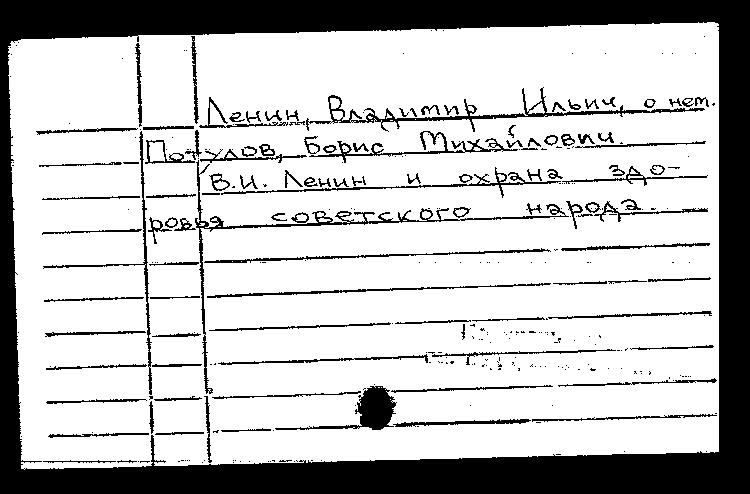 Ленин, Владимир Ильич, о нем.
Потулов, Борис Михайлович.
В.И. Ленин и охрана здо-
ровья советского народа.